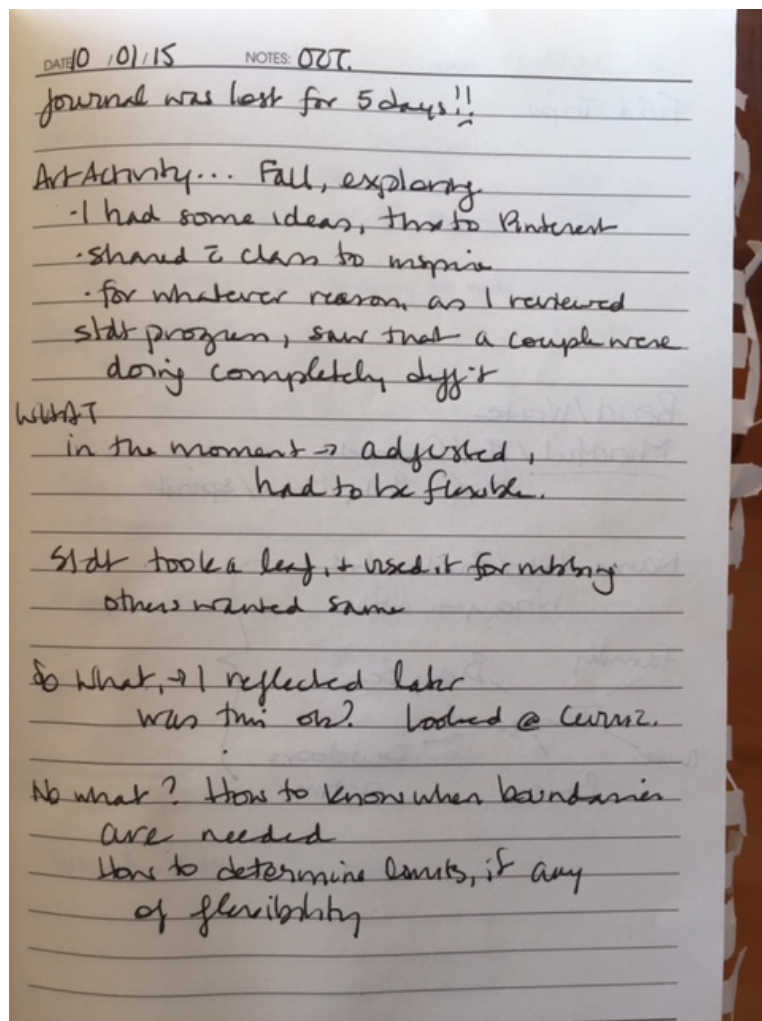 DATE 10/01/15 NOTES: OCT.
Journal was lost for 5 days!!
Art Activity... Fall, exploring
· I had some ideas, thx to Pinterest
· shared c̄ class to inspire
· for whatever reason, as I reviewed
stdt progress, saw that a couple were
doing completely diff't
WHAT
in the moment → adjusted,
had to be flexible.
Stdt took a leaf, + used it for rubbing
others wanted same
So What, → I reflected later
was this ok? Looked @ Curric.
No what? How to know when boundaries
are needed
How to determine limits, if any
of flexibility